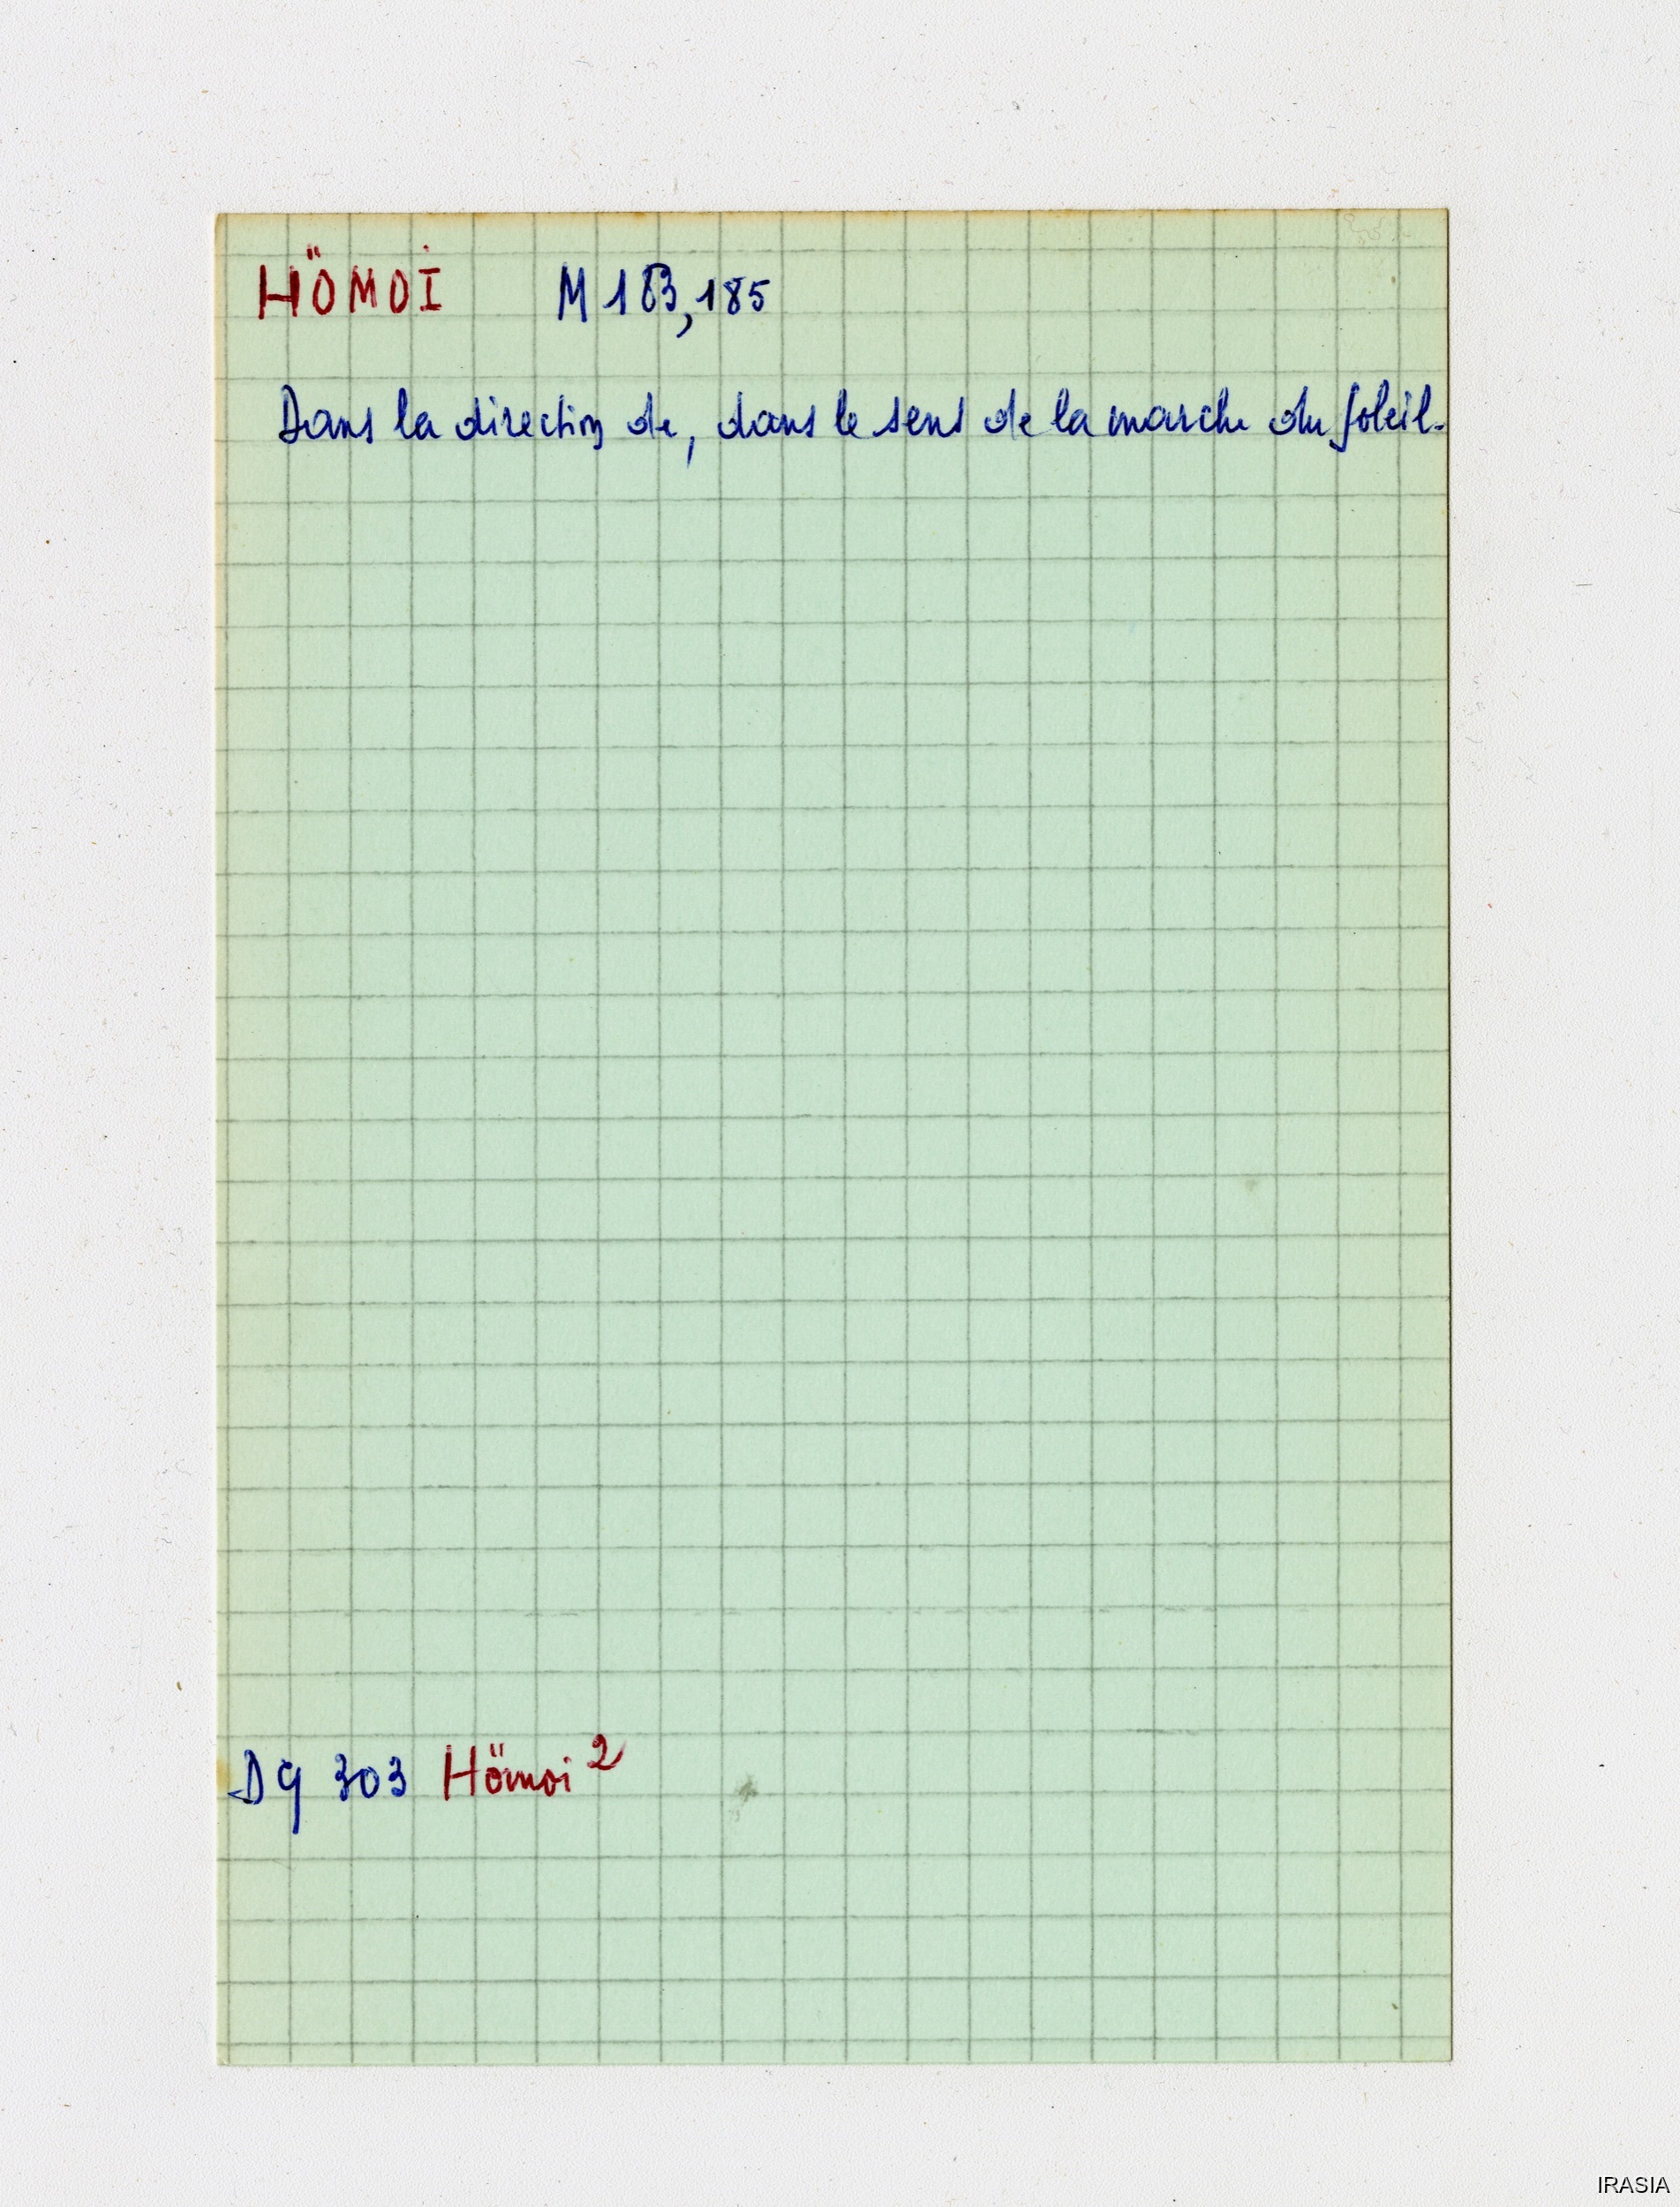 HÖMOI M 183, 185
Dans la direction de, dans le sens de la marche du soleil.
DG 303 Hömoi 2
IRASIA